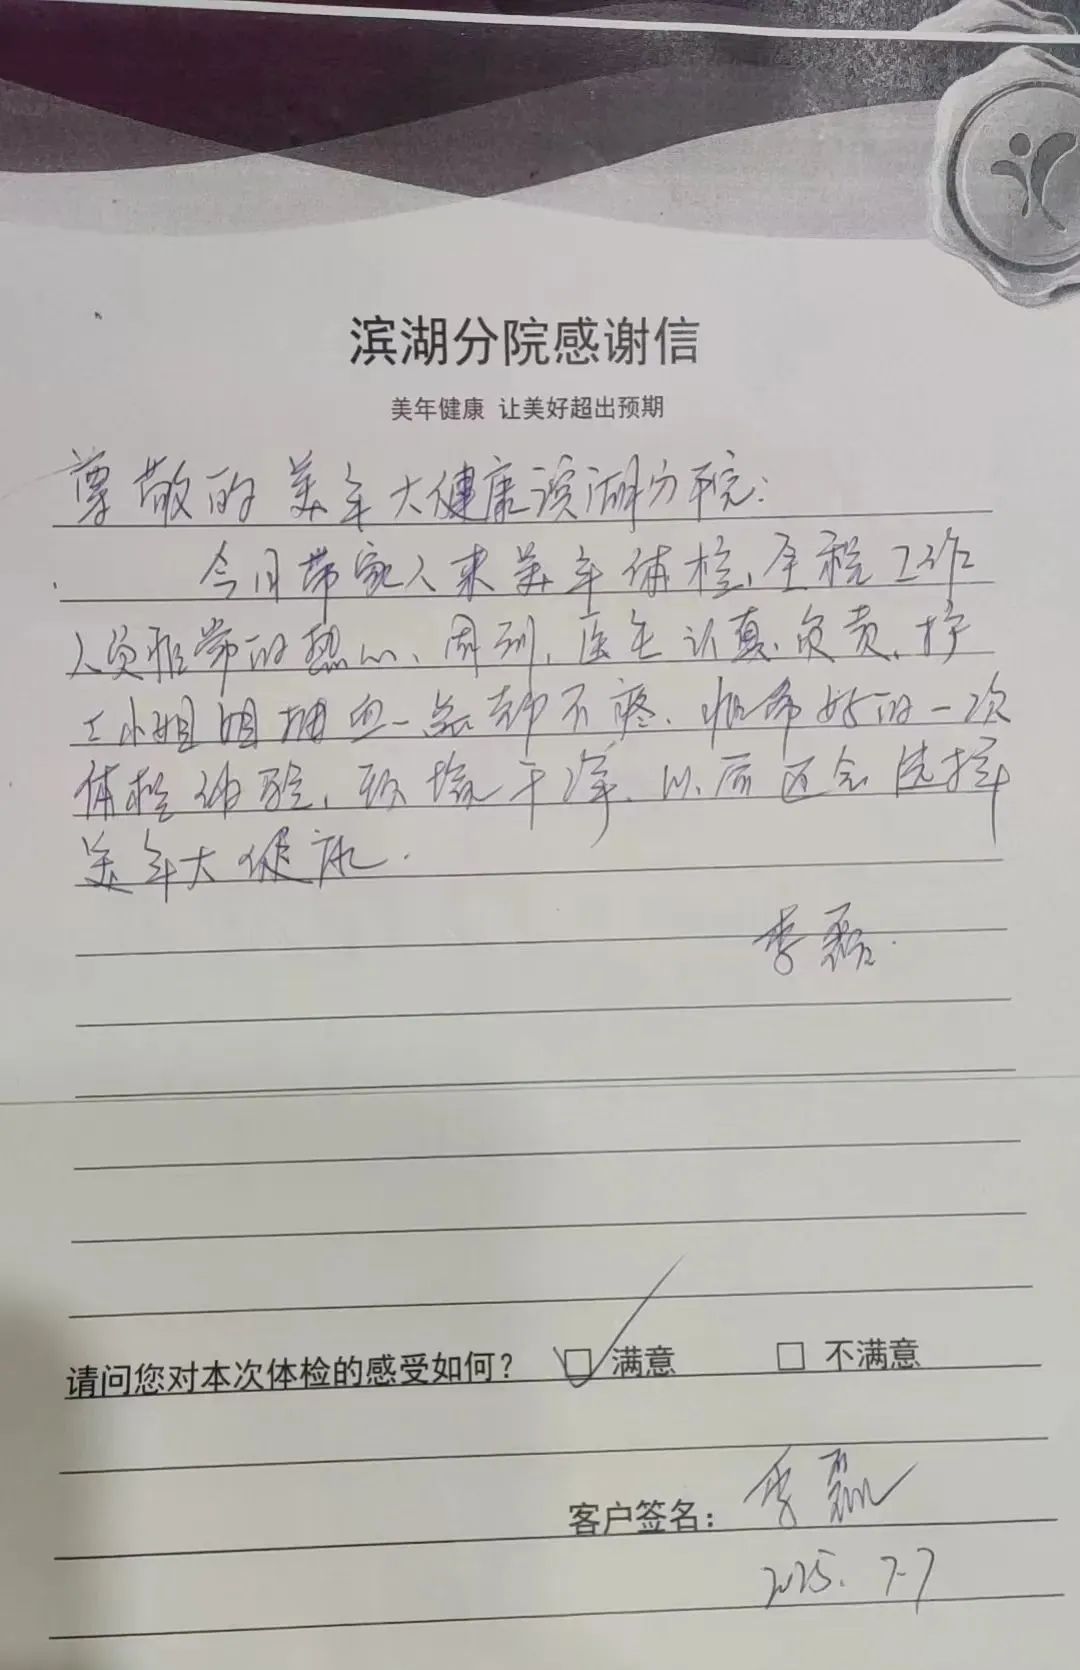 滨湖分院感谢信
美年健康 让美好超出预期
尊敬的美年大健康滨湖分院：
今日带家人来美年体检，全程工作
人员非常的热心、周到，医生认真、负责，护
士小姐姐抽血一点都不疼，非常好的一次
体检体验，环境干净，以后还会选择
美年大健康.
李磊.
请问您对本次体检的感受如何？ ☑ 满意 □ 不满意
客户签名：李磊
2025.7.7